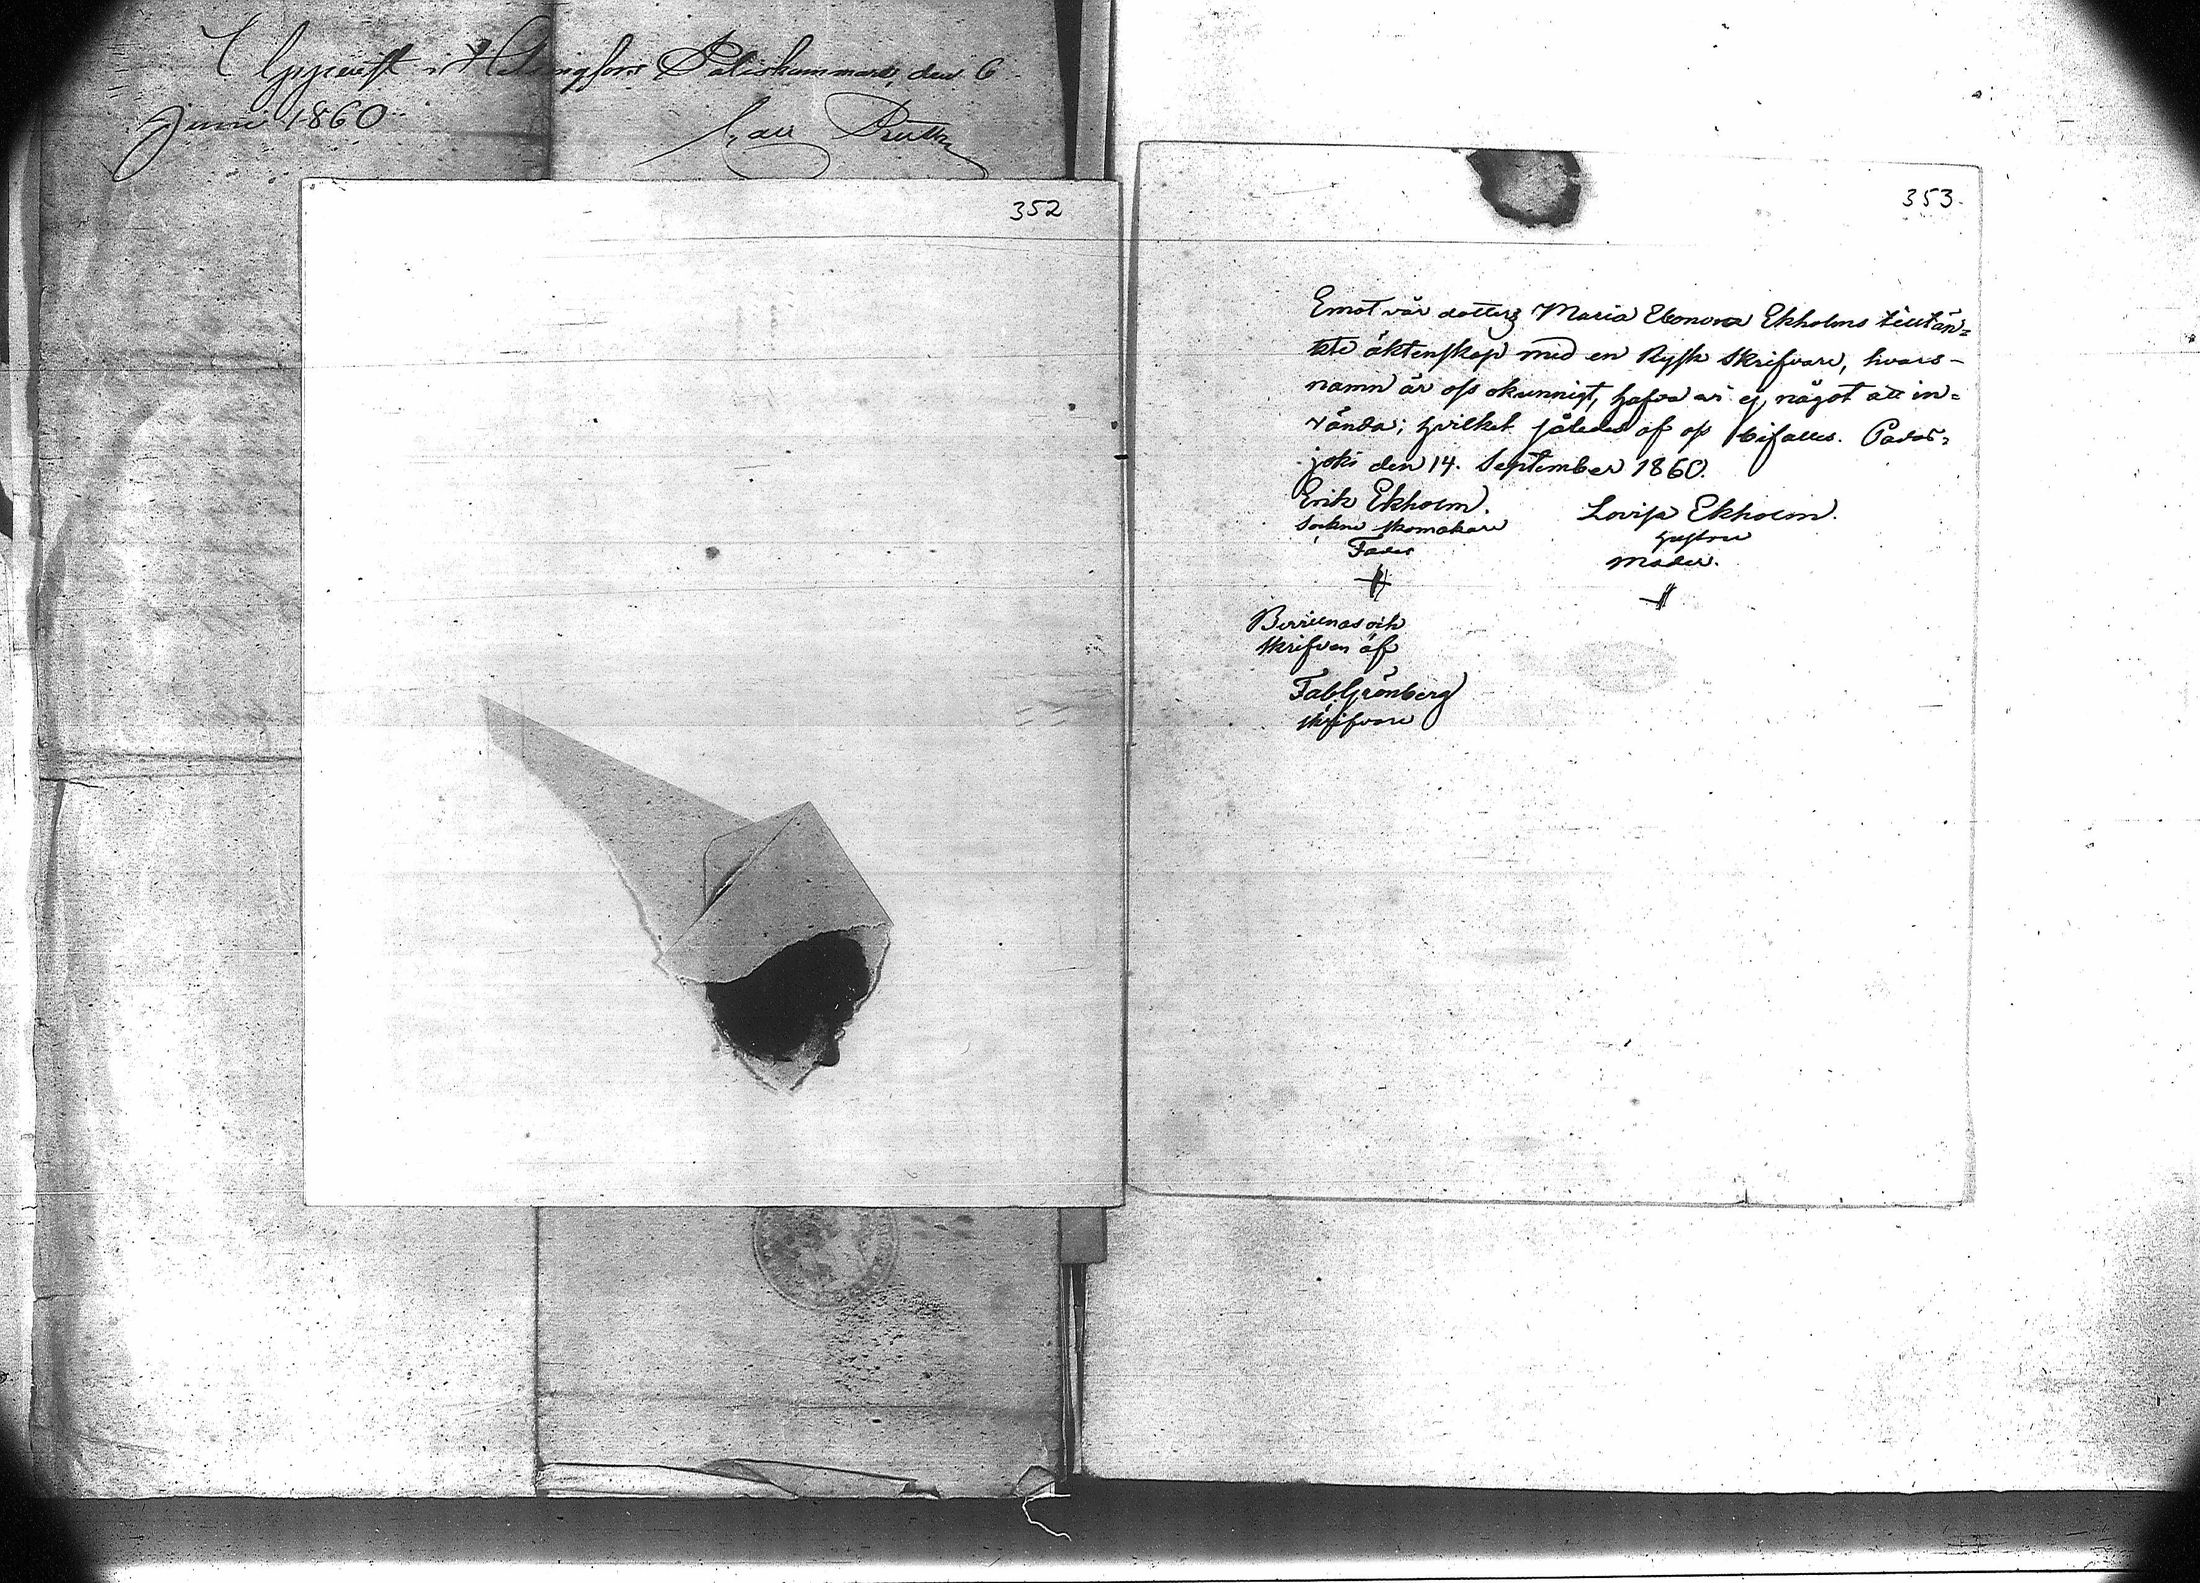 Uppvist i Helsingfors Poliskammare, den 6
Juni 1860.
352
353.
Emot vår dotters Maria Eleonora Ekholms tilltän=
kte äktenskap med en Rysk Skrifvare, hvars-
namn är oss okunnigt, hafva vi ej något att in=
vända; hvilket således af oss bifalles. Pados=
joki den 14. September 1860.
Erik Ekholm.
Sockne skomakare
Fader
Lovisa Ekholm.
hustru
Moder.
skrifven af
Fab. Grönberg
skrifvare